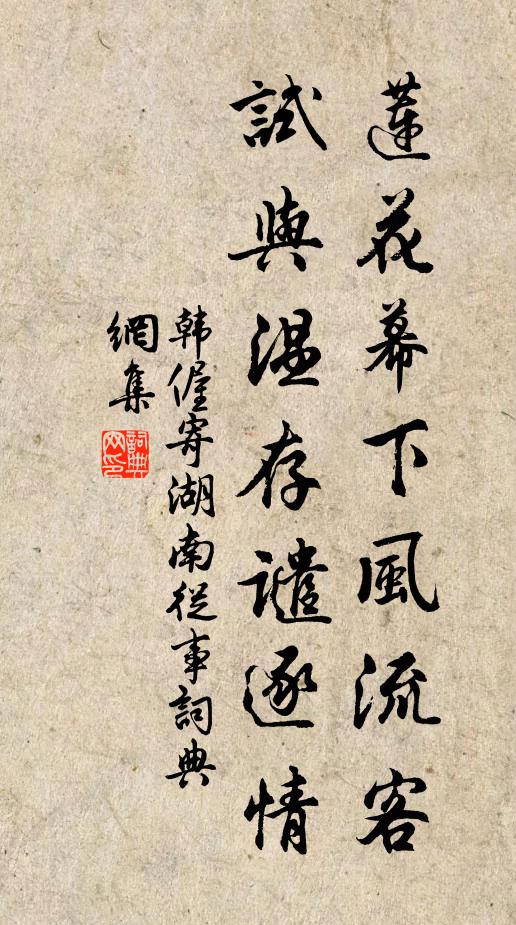 蓮花幕下風流客
試與溫存譴逐情
韓偓寄湖南從事詞典
網集
詞典
网印